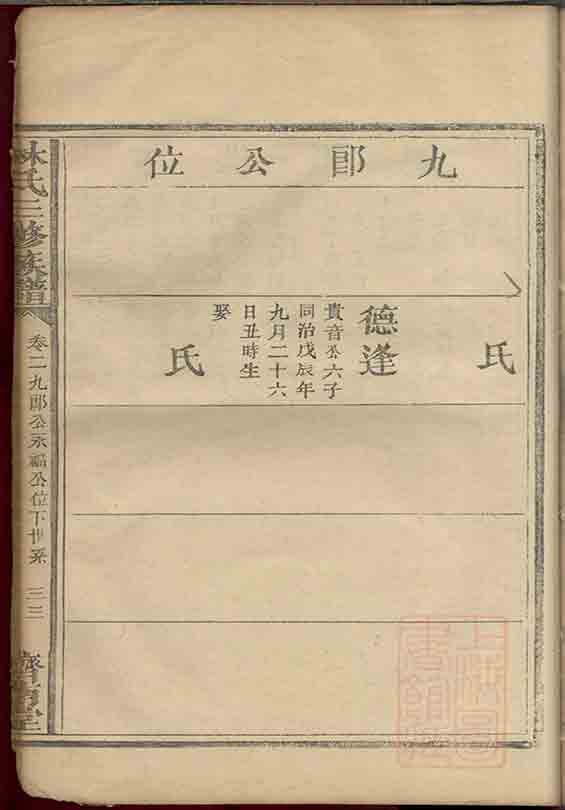 九郎公位
氏
德逢
貴音公六子
同治戊辰年
九月二十六
日丑時生
娶
氏
林氏三修族譜
卷二九郎公永福公位下世系
三三